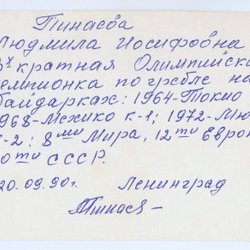 Пинаева
Людмила Иосифовна
3х кратная Олимпийска
чемпионка по гребле на
байдарках: 1964-Токио
1968-Мехико К-1; 1972-Мю
К-2: 8ми Мира, 12ти Европ
0ти СССР.
20.09.90г. Ленинград